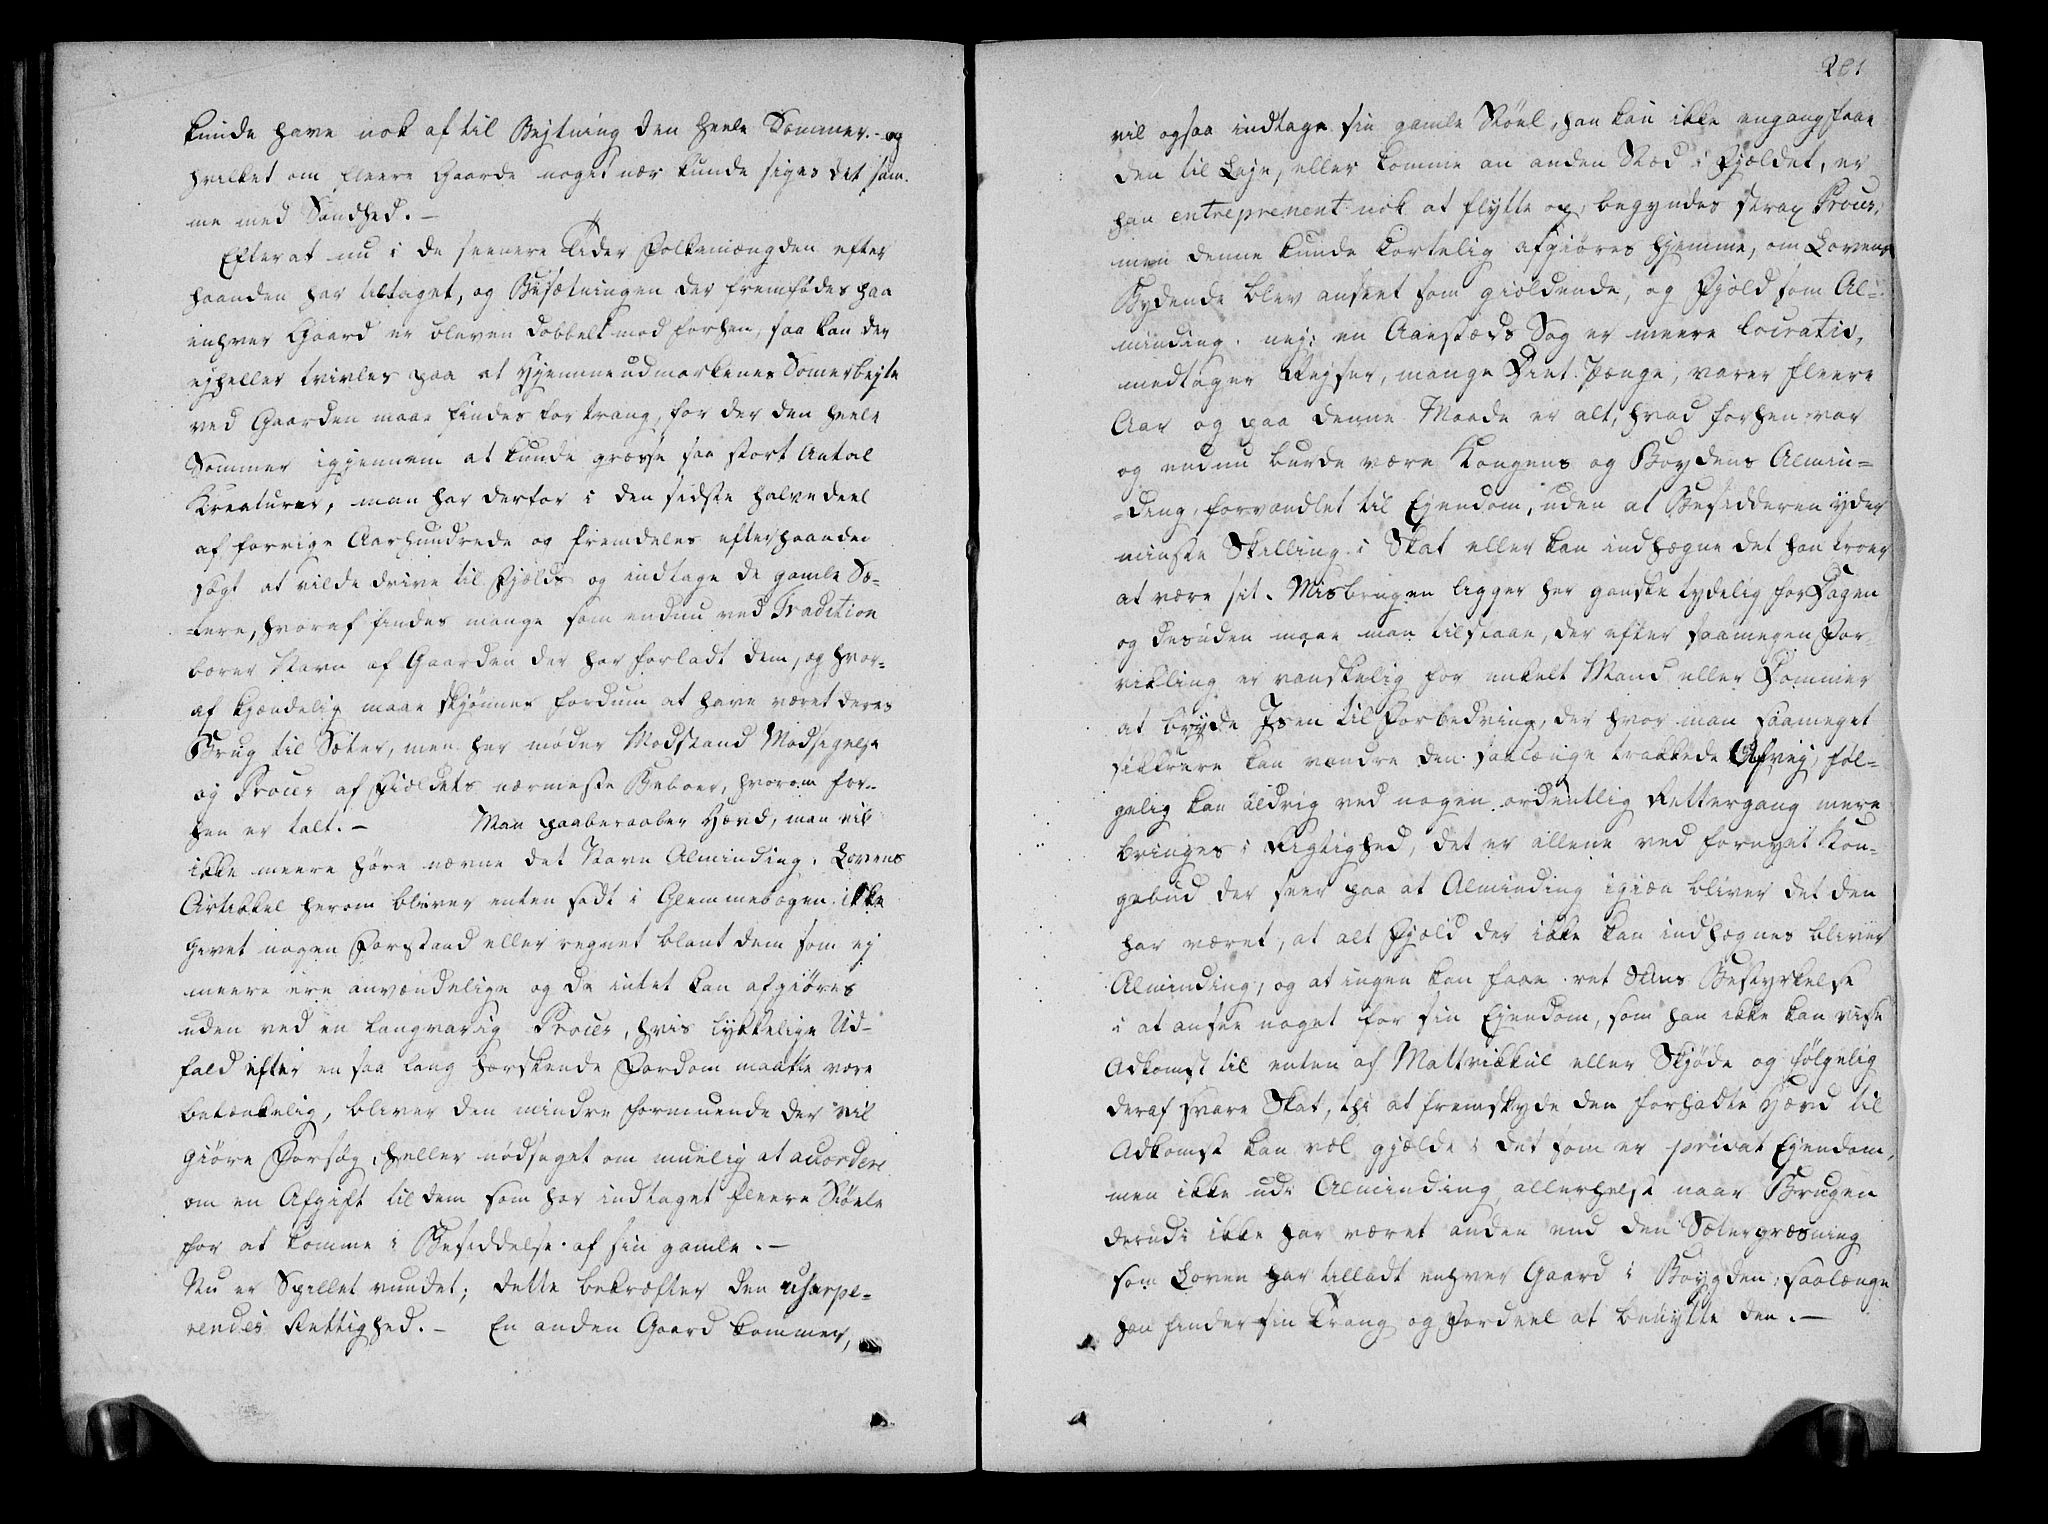 kunde have nok af til Bejtning den heele Sommer. og
hvilket om fleere Gaarde noget nær kunde siges det sam-
me med Sandhed. –
Efterat nu i de seenere Tider Folkemængden efter
haanden har tiltaget, og Besætningen der fremfødes paa
enhver Gaard er bleven dobbelt mod forhen, saa kan der
ejheller tvivles paa at Hjemmeudmarkenes Somerbejte
ved Gaarden maae findes for trang, for der den heele
Sommer igjennem at kunde græsse saa stort Antal
Kreaturer, man har derfor i den sidste halvedeel
af forrige Aarhundrede og fremdeles efterhaanden
søgt at vilde drive til Fjælds og indtage de gamle Sæ-
tere, hvoraf findes mange som endnu ved Tradition
bærer Navn af Gaarden der har forladt dem, og hvor-
af kjændelig maae skjønnes fordum at have været deres
Brug til Sæter, men her møder Modstand Modsigelse
og Proces af Fieldets nærmeste Beboer, hvorom for-
hen er talt. – Man paaberaaber Hævd, man vil
ikke meere høre nævne det Navn Alminding. Lovens
Artikkel herom bliver enten sadt i Glemmebogen ikke
givet nogen Forstand eller regnet blant dem som ej
meere ere anvændelige og da intet kan afgiøres
uden ved en langvarig Proces, hvis lykkelige Ud-
fald efter en saa lang herskende Fordom maatte være
betænkelig, bliver den mindre formuende der vil
giøre Forsøg, heller nødsaget om muelig at accordere
om en Afgift til dem som har indtaget fleere Støele
for at komme i Besiddelse af sin gamle. –
Nu er Spillet vundet; dette bekræfter den usurpe-
rendes Rettighed. – En anden Gaard kommer,
201
vil ogsaa indtage sin gamle Støel, han kan ikke engang faae
den til Leje, eller komme an anden Stæd i Fjældet, er
han entreprenent nok at flytte op, begyndes strax Proces,
men denne kunde kortelig afgiøres hjemme, om Lovens
Bydende blev anseet som gieldende, og Fjeld som Al-
minding. nej: en Aastæds Sag er meere lucrativ,
medtager Rejser, mange Diet Penge, varer fleere
Aar og paa denne Maade er alt, hvad forhen var
og endnu burde være Kongens og Bøydens Almin-
-ding, forvandlet til Ejendom, uden at Besidderen yder
minste Skilling i Skat eller kan indhægne det han troer
at være sit. Misbrugen ligger her ganske tydelig for Dagen
og desuden maae man tilstaae, der efter saamegen For-
vikling er vanskelig for enkelt Mand eller Dommer
at bryde Isen til Forbedring, der hvor man saameget
sikkrere kan vandre den saalænge trakkede Afvej, føl-
gelig kan aldrig ved nogen ordentlig Rettergang mere
bringes i Rigtighed, det er allene ved fornyet Kon-
gebud der seer paa at Alminding igien bliver det den
har været, at alt Fjeld der ikke kan indhægnes bliver
Alminding, og at ingen kan faae ret Bestyrkelse
i at ansee noget for sin Ejendom, som han ikke kan vise
Adkomst til enten af Mattrikkul eller Skjøde og følgelig
deraf svare Skat, thi at fremskyde den forhadte Hævd til
Adkomst kan vel gjelde i det som er privat Ejendom,
men ikke udi Alminding, allerhelst naar Brugen
derudi ikke har været anden end den Sætergræsning
som Loven har tilladt enhver Gaard i Bøygden, saalænge
han finder sin Trang og Fordeel at benytte den. –